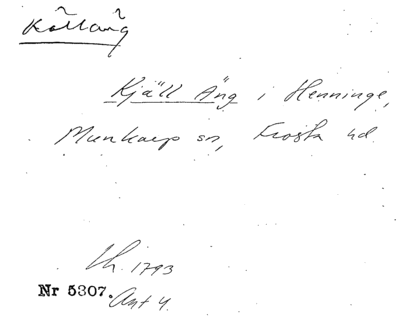 Källäng
Kjäll Äng i Henninge,
Munkarp sn, Frosta hd
Lh. 1793
Nr 5307. Akt 4.